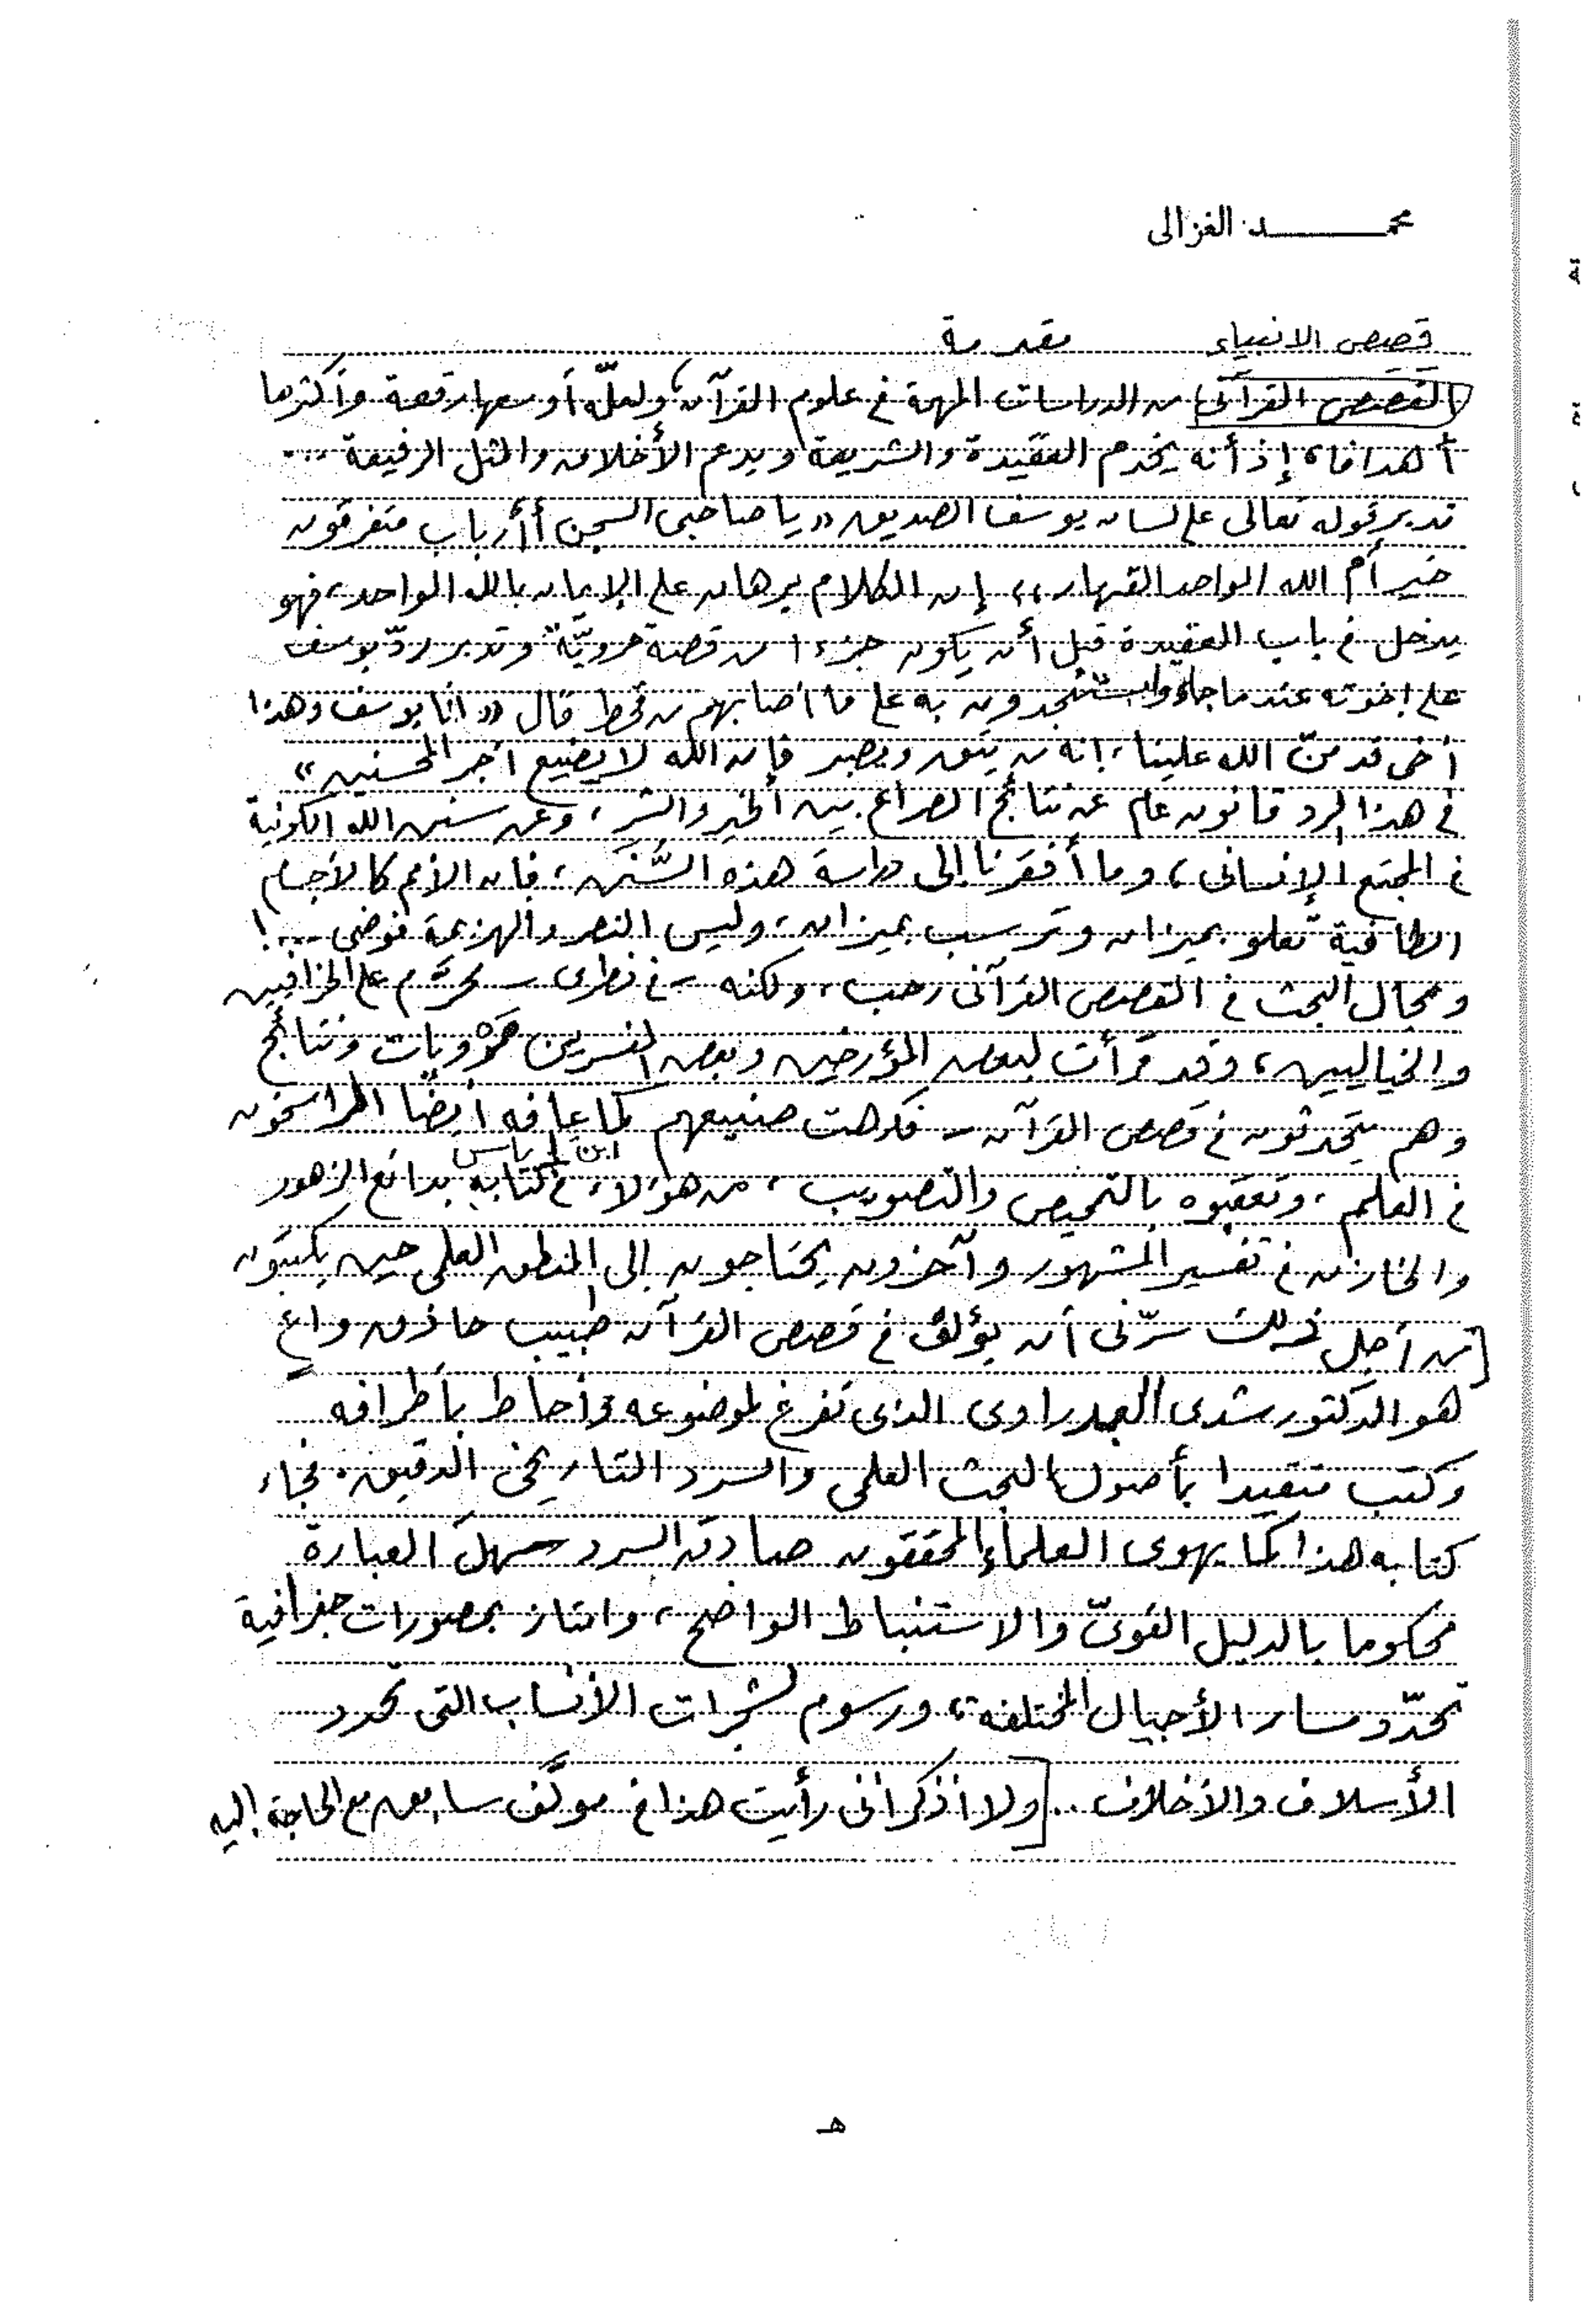 محمد الغزالى
قصص الانبياء مقدمة
القصص القرآنى من الدراسات المهمة فى علوم القرآن، ولعلّه أوسعها رقعة وأكثرها
أهدافا، إذ أنه يخدم العقيدة والشريعة ويدعم الأخلاق والمثل الرفيعة ...
تدبر قوله تعالى على لسان يوسف الصديق «يا صاحبى السجن أأرباب متفرقون
خير أم الله الواحد القهار» إن الكلام برهان على الإيمان بالله الواحد، فهو
يدخل فى باب العقيدة قبل أن يكون جزءا من قصة مرويّة وتدبر ردّ يوسف
على إخوته عندما جاءوا يستنجدون به على ما أصابهم من قحط قال «أنا يوسف وهذا
أخى قد منّ الله علينا، إنه من يتق ويصبر فإن الله لا يضيع أجر المحسنين»
فى هذا الرد قانون عام عن نتائج الصراع بين الخير والشر، وعن سنن الله الكونية
فى المجتمع الإنسانى، وما أفقرنا إلى دراسة هذه السُّنن، فإن الأمم كالأجسام
الطافية تعلو بميزان وترسب بميزان، وليس النصر والهزيمة فوضى ...!
ومجال البحث فى القصص القرآنى رحب، ولكنه - فى نظرى - محرّم على الخرافيين
والخياليين، وقد قرأت لبعض المؤرخين وبعض المفسرين مرويات ونتائج
وهم يتحدثون فى قصص القرآن - فكرهت صنيعهم كما عافه أيضًا الراسخون
فى العلم، وتعقبوه بالتمحيص والتصويب، من هؤلاء ابن إياس فى كتابه بدائع الزهور
والخازن فى تفسير المشهور وآخرون يحتاجون إلى المنطق العلمى حين يكتبون
[من أجل ذلك سرّنى أن يؤلف فى قصص القرآن طبيب حاذق واعٍ
هو الدكتور رشدى البدراوى الذى تفرغ لموضوعه وأحاط بأطرافه
وكتب متقيدا بأصول البحث العلمى والسرد التاريخى الدقيق. فجاء
كتابه هذا كما يهوى العلماء المحققون صادق السرد سهل العبارة
محكوما بالدليل القوىّ والاستنباط الواضح، وامتاز بمصورات جغرافية
تحدّد مسار الأجيال المختلفة، ورسوم لشجرات الأنساب التى تحدد
الأسلاف والأخلاف .. [ولا أذكر أننى رأيت هذا فى مؤلَّف سابق مع الحاجة إليه
هـ